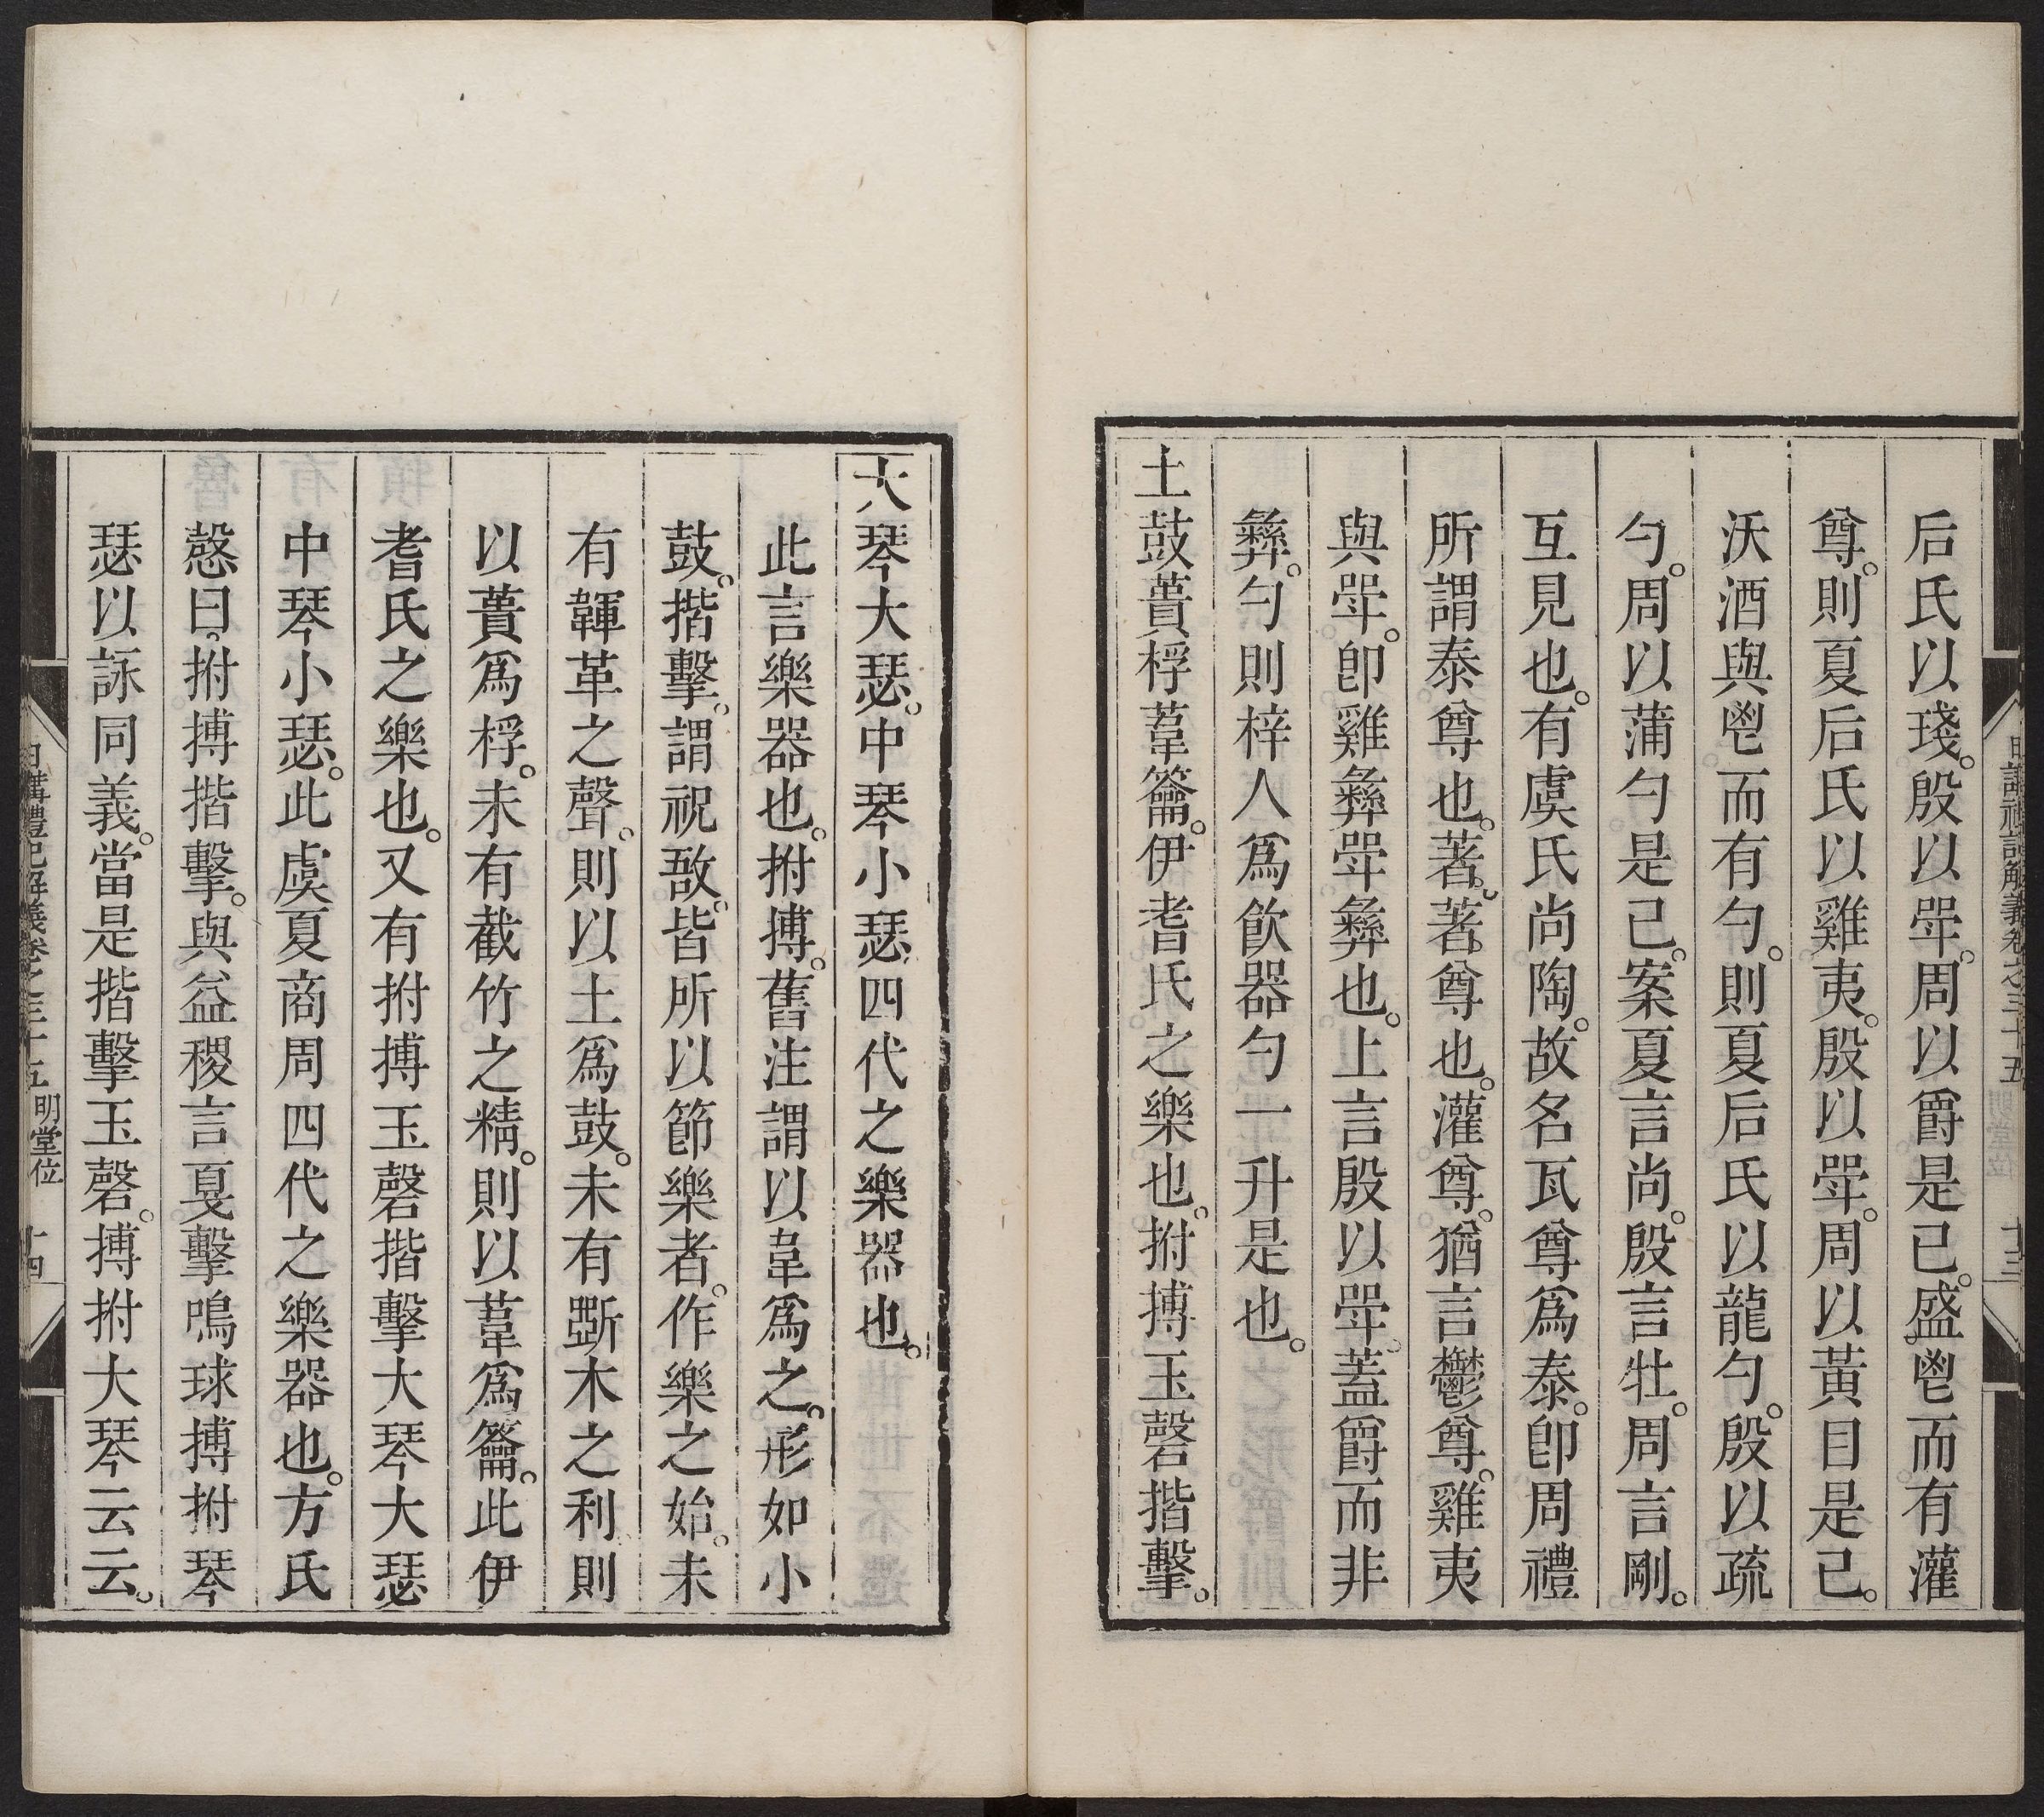 后氏以琖。殷以斝。周以爵是已。盛鬯而有灌
尊。則夏后氏以雞夷。殷以斝。周以黃目是已。
沃酒與鬯而有勺。則夏后氏以龍勺。殷以疏
勺。周以蒲勺是已。案夏言尚。殷言牡。周言剛。
互見也。有虞氏尚陶。故名瓦尊爲泰。卽周禮
所謂泰尊也。著。著尊也。灌尊。猶言鬱尊。雞夷
與斝。卽雞彝斝彝也。上言殷以斝。蓋爵而非
彝。勺則梓人爲飲器勺一升是也。
土鼓蕢桴葦籥。伊耆氏之樂也。拊搏玉磬揩擊。
日講禮記解義卷之三十五 明堂位 十三
大琴大瑟。中琴小瑟。四代之樂器也。
此言樂器也。拊搏。舊注謂以韋爲之。形如小
鼓。揩擊。謂柷敔。皆所以節樂者。作樂之始。未
有韗革之聲。則以土爲鼓。未有斲木之利。則
以蕢爲桴。未有截竹之精。則以葦爲籥。此伊
耆氏之樂也。又有拊搏玉磬揩擊大琴大瑟
中琴小瑟。此虞夏商周四代之樂器也。方氏
慤曰。拊搏揩擊。與益稷言戛擊鳴球搏拊琴
瑟以詠同義。當是揩擊玉磬。搏拊大琴云云。
日講禮記解義卷之三十五 明堂位 十四